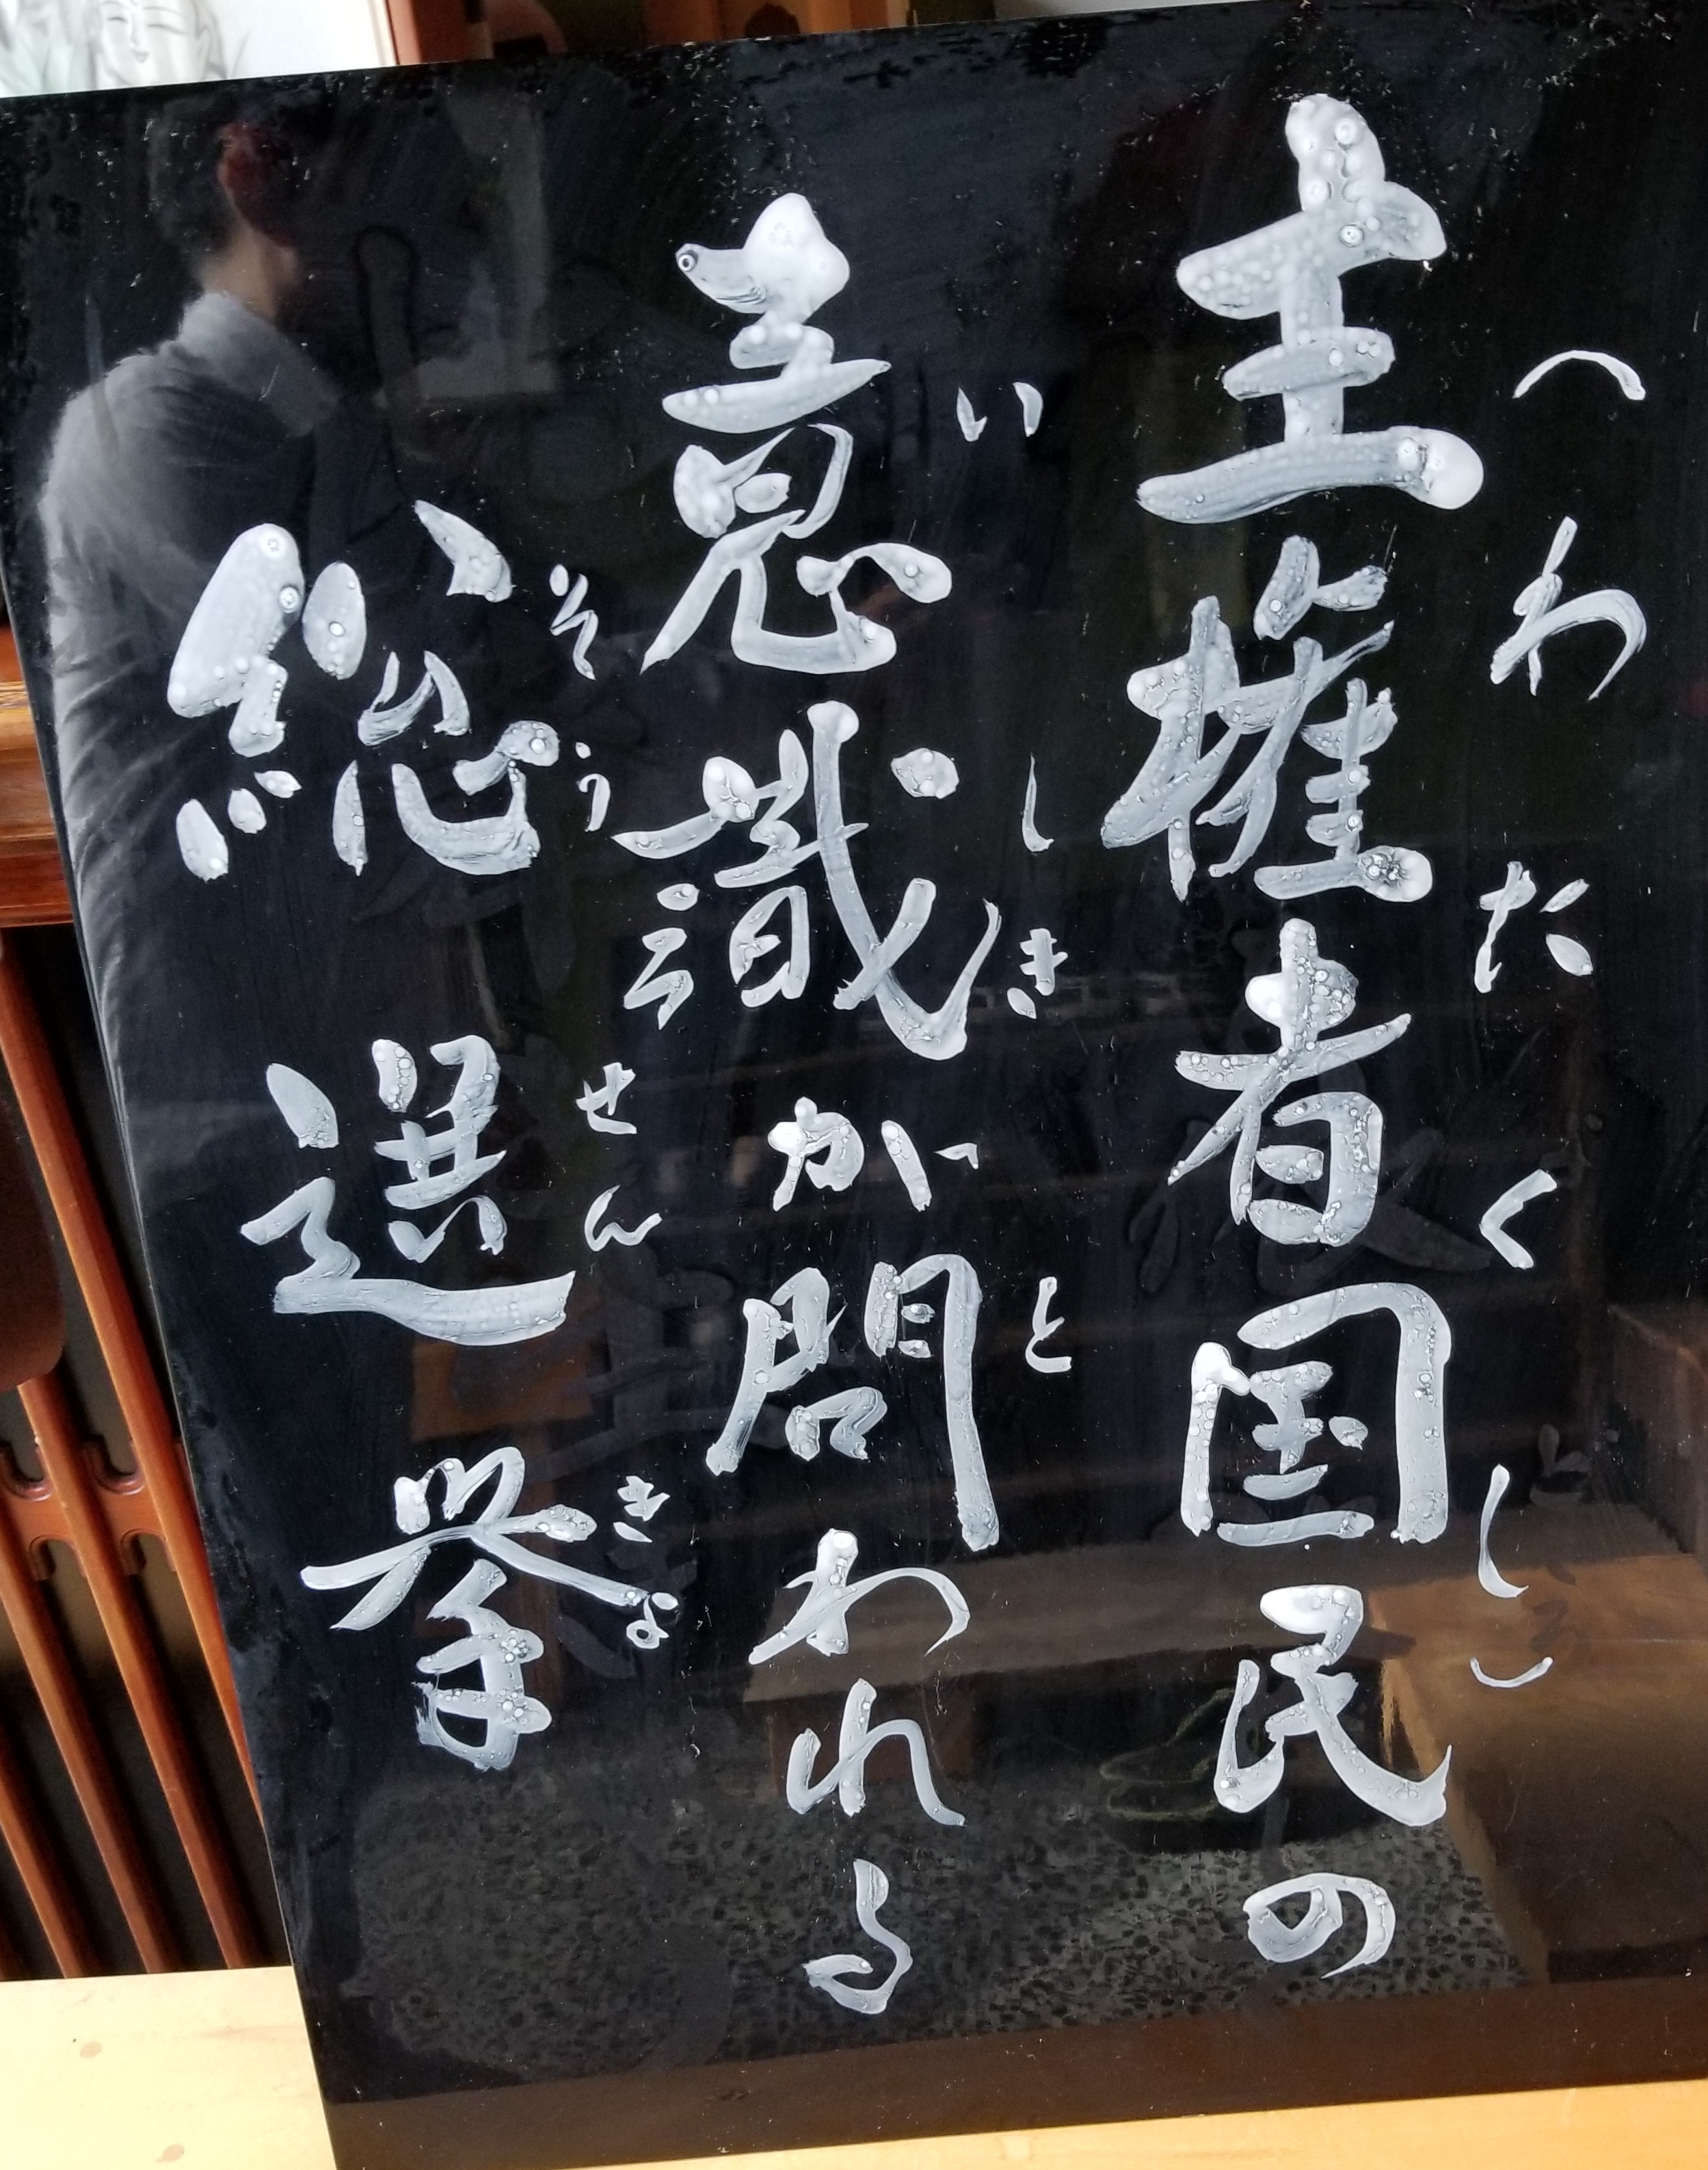 主権者国民の
（わたくし）
意識が問われる
いしきと
総選挙
そうせんきょ